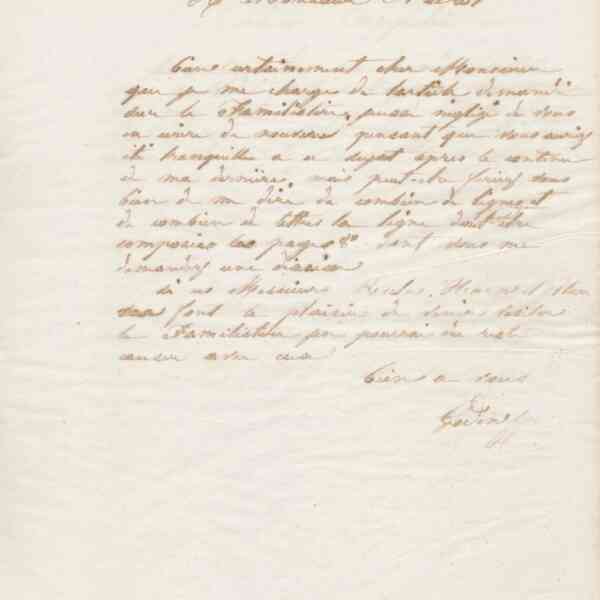 Monsieur
certainement cher Monsieur
que je me charge de l'article demandé
sur le Familistère, j'avais négligé de vous
en écrire de nouveau pensant que vous auriez
été tranquille a ce sujet après le contenu
de ma dernière, mais peut-être feriez vous
bien de me dire de combien de lignes et
de combien de lettres la ligne doit être
composées les pages &a dont vous me
demandez une
si ces Messieurs
font le plaisir de venir visiter
le Familistère je pourrai du reste
causer avec eux
bien a vous
Godin